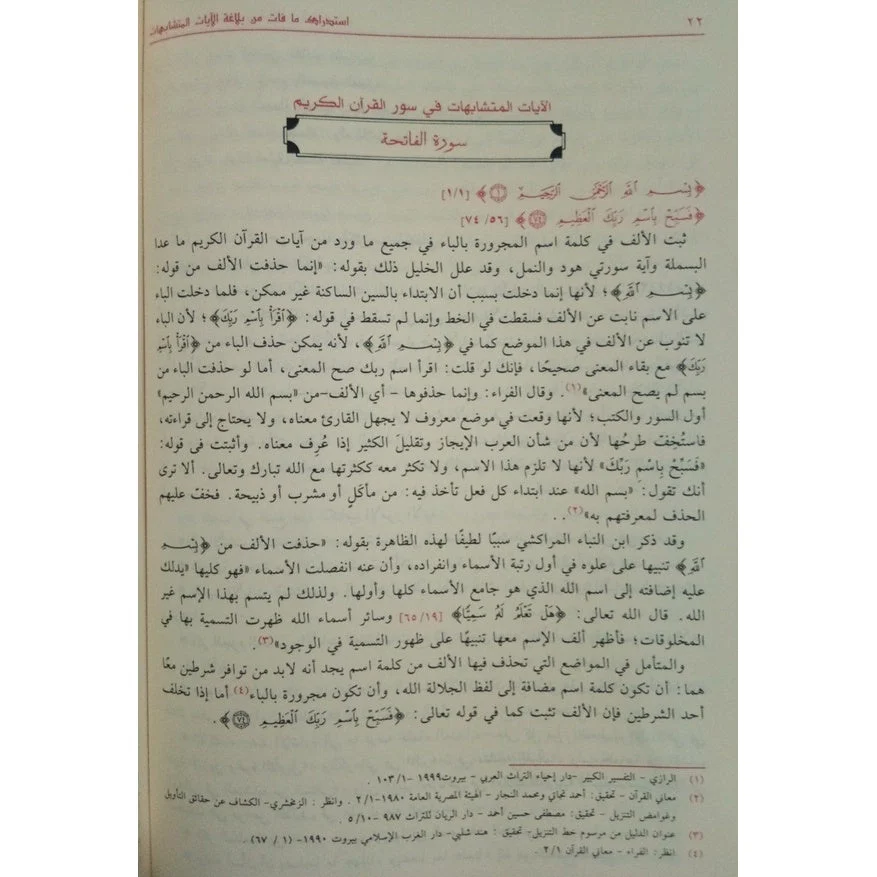 ٢٢
استدراك ما فات من بلاغة الآيات المتشابهات
الآيات المتشابهات في سور القرآن الكريم
سورة الفاتحة
﴿بِسْمِ ٱللَّهِ ٱلرَّحْمَٰنِ ٱلرَّحِيمِ ١﴾ [١/١]
﴿فَسَبِّحْ بِٱسْمِ رَبِّكَ ٱلْعَظِيمِ ٧٤﴾ [٧٤/٥٦]
ثبت الألف في كلمة اسم المجرورة بالباء في جميع ما ورد من آيات القرآن الكريم ما عدا
البسملة وآية سورتي هود والنمل، وقد علل الخليل ذلك بقوله: «إنما حذفت الألف من قوله:
﴿بِسْمِ ٱللَّهِ﴾؛ لأنها إنما دخلت بسبب أن الابتداء بالسين الساكنة غير ممكن، فلما دخلت الباء
على الاسم نابت عن الألف فسقطت في الخط وإنما لم تسقط في قوله: ﴿ٱقْرَأْ بِٱسْمِ رَبِّكَ﴾؛ لأن الباء
لا تنوب عن الألف في هذا الموضع كما في ﴿بِسْمِ ٱللَّهِ﴾، لأنه يمكن حذف الباء من ﴿ٱقْرَأْ بِٱسْمِ
رَبِّكَ﴾ مع بقاء المعنى صحيحًا، فإنك لو قلت: اقرأ اسم ربك صح المعنى، أما لو حذفت الباء من
بسم لم يصح المعنى»(١). وقال الفراء: وإنما حذفوها - أي الألف-من «بسم الله الرحمن الرحيم»
أول السور والكتب؛ لأنها وقعت في موضع معروف لا يجهل القارئ معناه، ولا يحتاج إلى قراءته،
فاستُخِفّ طرحُها لأن من شأن العرب الإيجاز وتقليلَ الكثير إذا عُرِف معناه. وأثبتت فى قوله:
«فَسَبِّحْ بِاسْمِ رَبِّكَ» لأنها لا تلزم هذا الاسم، ولا تكثر معه ككثرتها مع الله تبارك وتعالى. ألا ترى
أنك تقول: «بسم الله» عند ابتداء كل فعل تأخذ فيه: من مأكَلٍ أو مشرب أو ذبيحة. فخفّ عليهم
الحذف لمعرفتهم به»(٢)..
وقد ذكر ابن النباء المراكشي سببًا لطيفًا لهذه الظاهرة بقوله: «حذفت الألف من ﴿بِسْمِ
ٱللَّهِ﴾ تنبيها على علوه في أول رتبة الأسماء وانفراده، وأن عنه انفصلت الأسماء «فهو كليها «يدلك
عليه إضافته إلى اسم الله الذي هو جامع الأسماء كلها وأولها. ولذلك لم يتسم بهذا الإسم غير
الله. قال الله تعالى: ﴿هَلْ تَعْلَمُ لَهُ سَمِيًّا﴾ [٦٥/١٩] وسائر أسماء الله ظهرت التسمية بها في
المخلوقات؛ فأظهر ألف الإسم معها تنبيهًا على ظهور التسمية في الوجود»(٣).
والمتأمل في المواضع التي تحذف فيها الألف من كلمة اسم يجد أنه لابد من توافر شرطين معًا
هما: أن تكون كلمة اسم مضافة إلى لفظ الجلالة الله، وأن تكون مجرورة بالباء(٤) أما إذا تخلف
أحد الشرطين فإن الألف تثبت كما في قوله تعالى: ﴿فَسَبِّحْ بِٱسْمِ رَبِّكَ ٱلْعَظِيمِ ٧٤﴾.
(١) الرازي - التفسير الكبير -دار إحياء التراث العربي - بيروت١٩٩٩ -١٠٣/١ .
(٢) معاني القرآن - تحقيق: أحمد نجاتي ومحمد النجار - الهيئة المصرية العامة ١٩٨٠-٢/١ . وانظر : الزمخشري- الكشاف عن حقائق التأويل
وغوامض التنزيل - تحقيق: مصطفى حسين أحمد - دار الريان للتراث ٩٨٧ -٥/١٠
(٣) عنوان الدليل من مرسوم خط التنزيل- تحقيق : هند شلبي- دار الغرب الإسلامي بيروت ١٩٩٠- (١ / ٦٧) .
(٤) انظر: الفراء - معاني القرآن ٢/١ .